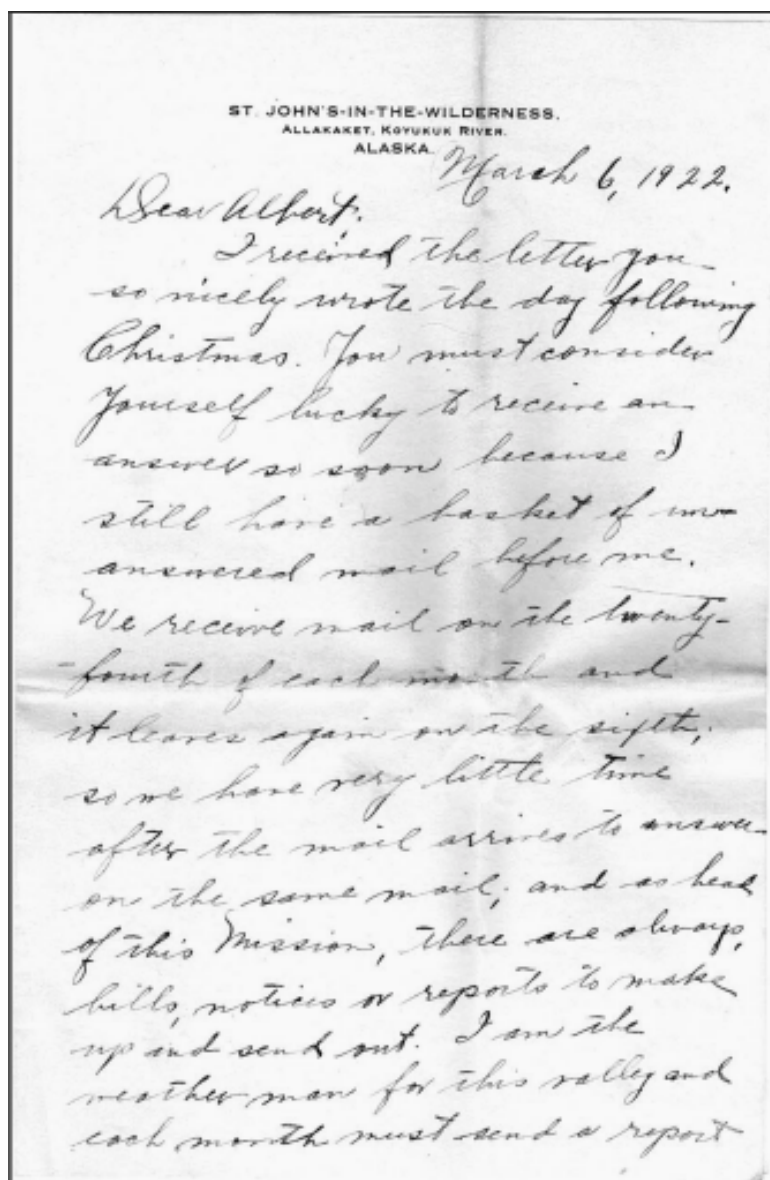 ST. JOHN'S-IN-THE-WILDERNESS.
ALLAKAKET, KOYUKUK RIVER.
ALASKA.
March 6, 1922.
Dear Albert:
I received the letter you
so nicely wrote the day following
Christmas. You must consider
yourself lucky to receive an
answer so soon because I
still have a basket of un-
answered mail before me.
We receive mail on the twenty-
fourth of each month and
it leaves again on the sixth;
so we have very little time
after the mail arrives to answer
on the same mail; and as head
of this Mission, there are always,
bills, notices or reports to make
up and send out. I am the
weather man for this valley and
each month must send a report